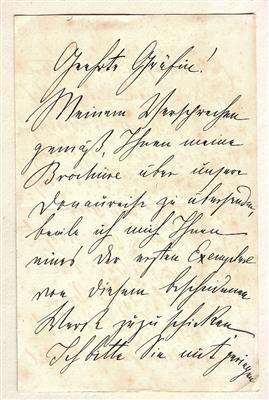 Geehrte Gräfin!
Meinem Versprechen
gemäß, Ihnen meine
Brochüre über unsere
Donaureise zu übersenden,
beeile ich mich Ihnen
eines der ersten Exemplare
von diesem bescheidenen
Werke zuzuschicken.
Ich bitte Sie mit